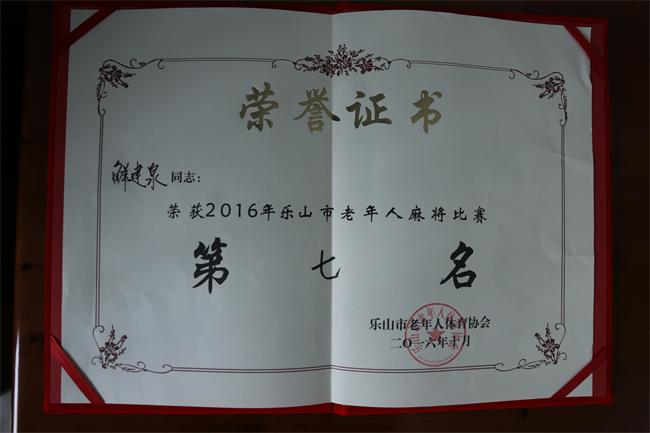 荣誉证书
鲜建泉 同志：
荣获2016年乐山市老年人麻将比赛
第七名
乐山市老年人体育协会
二〇一六年十月